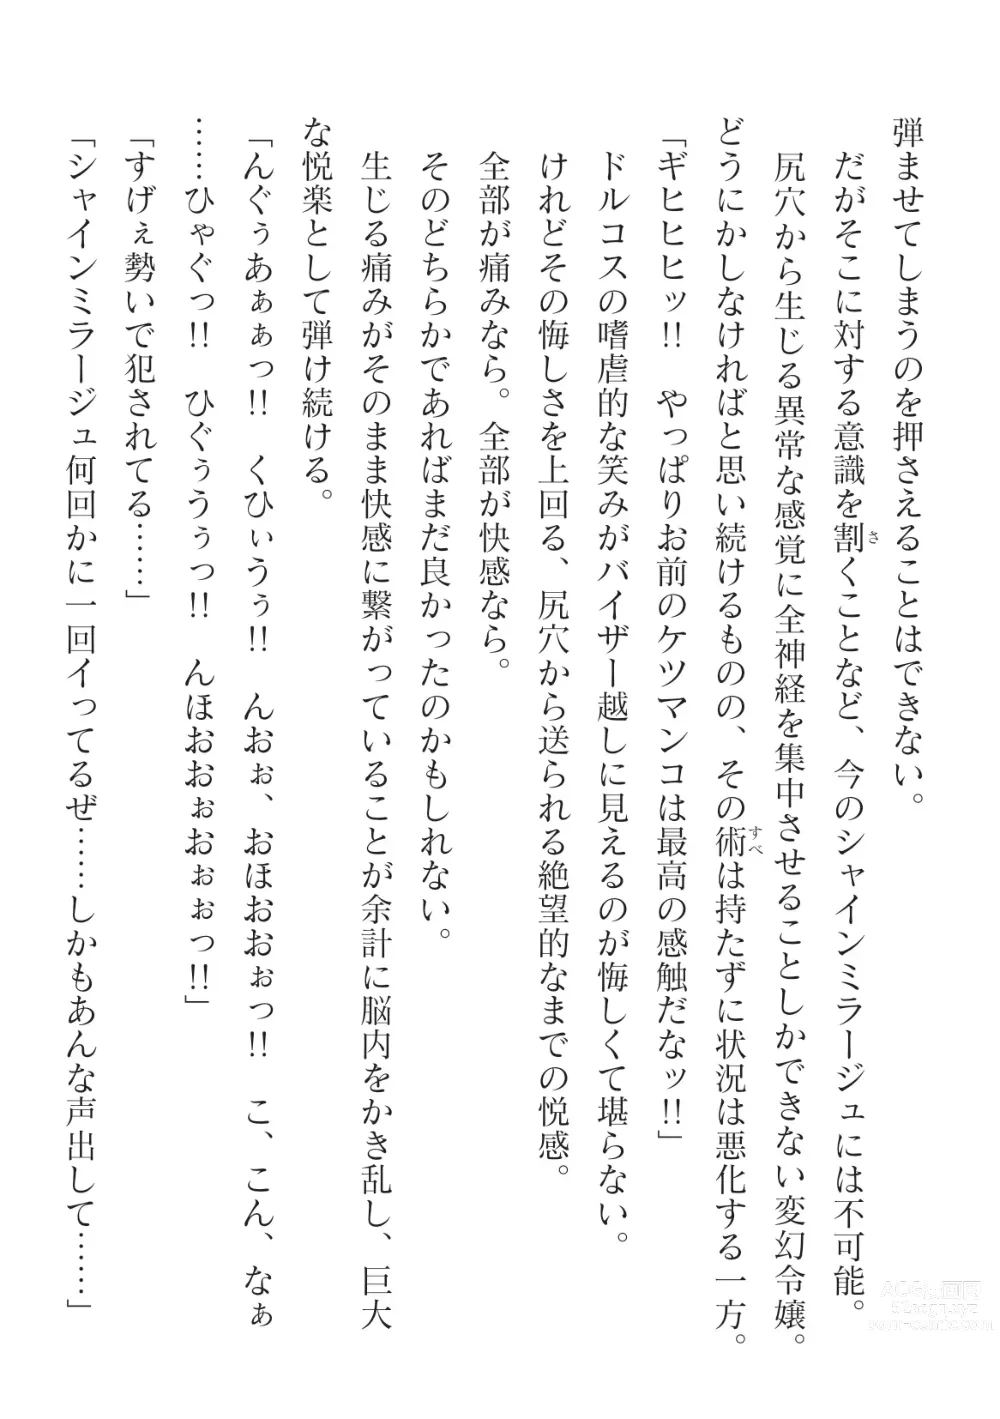 弾ませてしまうのを押さえることはできない。
だがそこに対する意識を割くことなど、今のシャインミラージュには不可能。
尻穴から生じる異常な感覚に全神経を集中させることしかできない変幻令嬢。
どうにかしなければと思い続けるものの、その術は持たずに状況は悪化する一方。
「ギヒヒヒッ!!　やっぱりお前のケツマンコは最高の感触だなッ!!」
ドルコスの嗜虐的な笑みがバイザー越しに見えるのが悔しくて堪らない。
けれどその悔しさを上回る、尻穴から送られる絶望的なまでの悦感。
全部が痛みなら。全部が快感なら。
そのどちらかであればまだ良かったのかもしれない。
生じる痛みがそのまま快感に繋がっていることが余計に脳内をかき乱し、巨大
な悦楽として弾け続ける。
「んぐぅあぁぁっ!!　くひぃうぅ!!　んおぉ、おほおおぉっ!!　こ、こん、なぁ
……ひゃぐっ!!　ひぐぅうぅっ!!　んほおおぉおぉぉっ!!」
「すげぇ勢いで犯されてる……」
「シャインミラージュ何回かに一回イってるぜ……しかもあんな声出して……」
さ
すべ